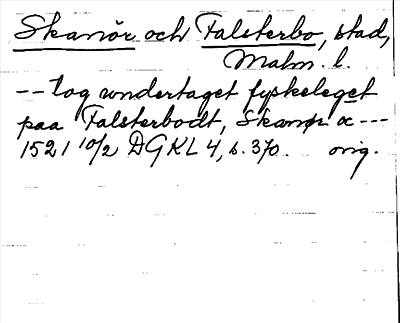 Skanör och Falsterbo, stad,
Malm. l.
-- tog undertaget fyskeleget
paa Falsterbodt, Skanør oc ---
1521 10/2 DGKL 4, s. 370. orig.